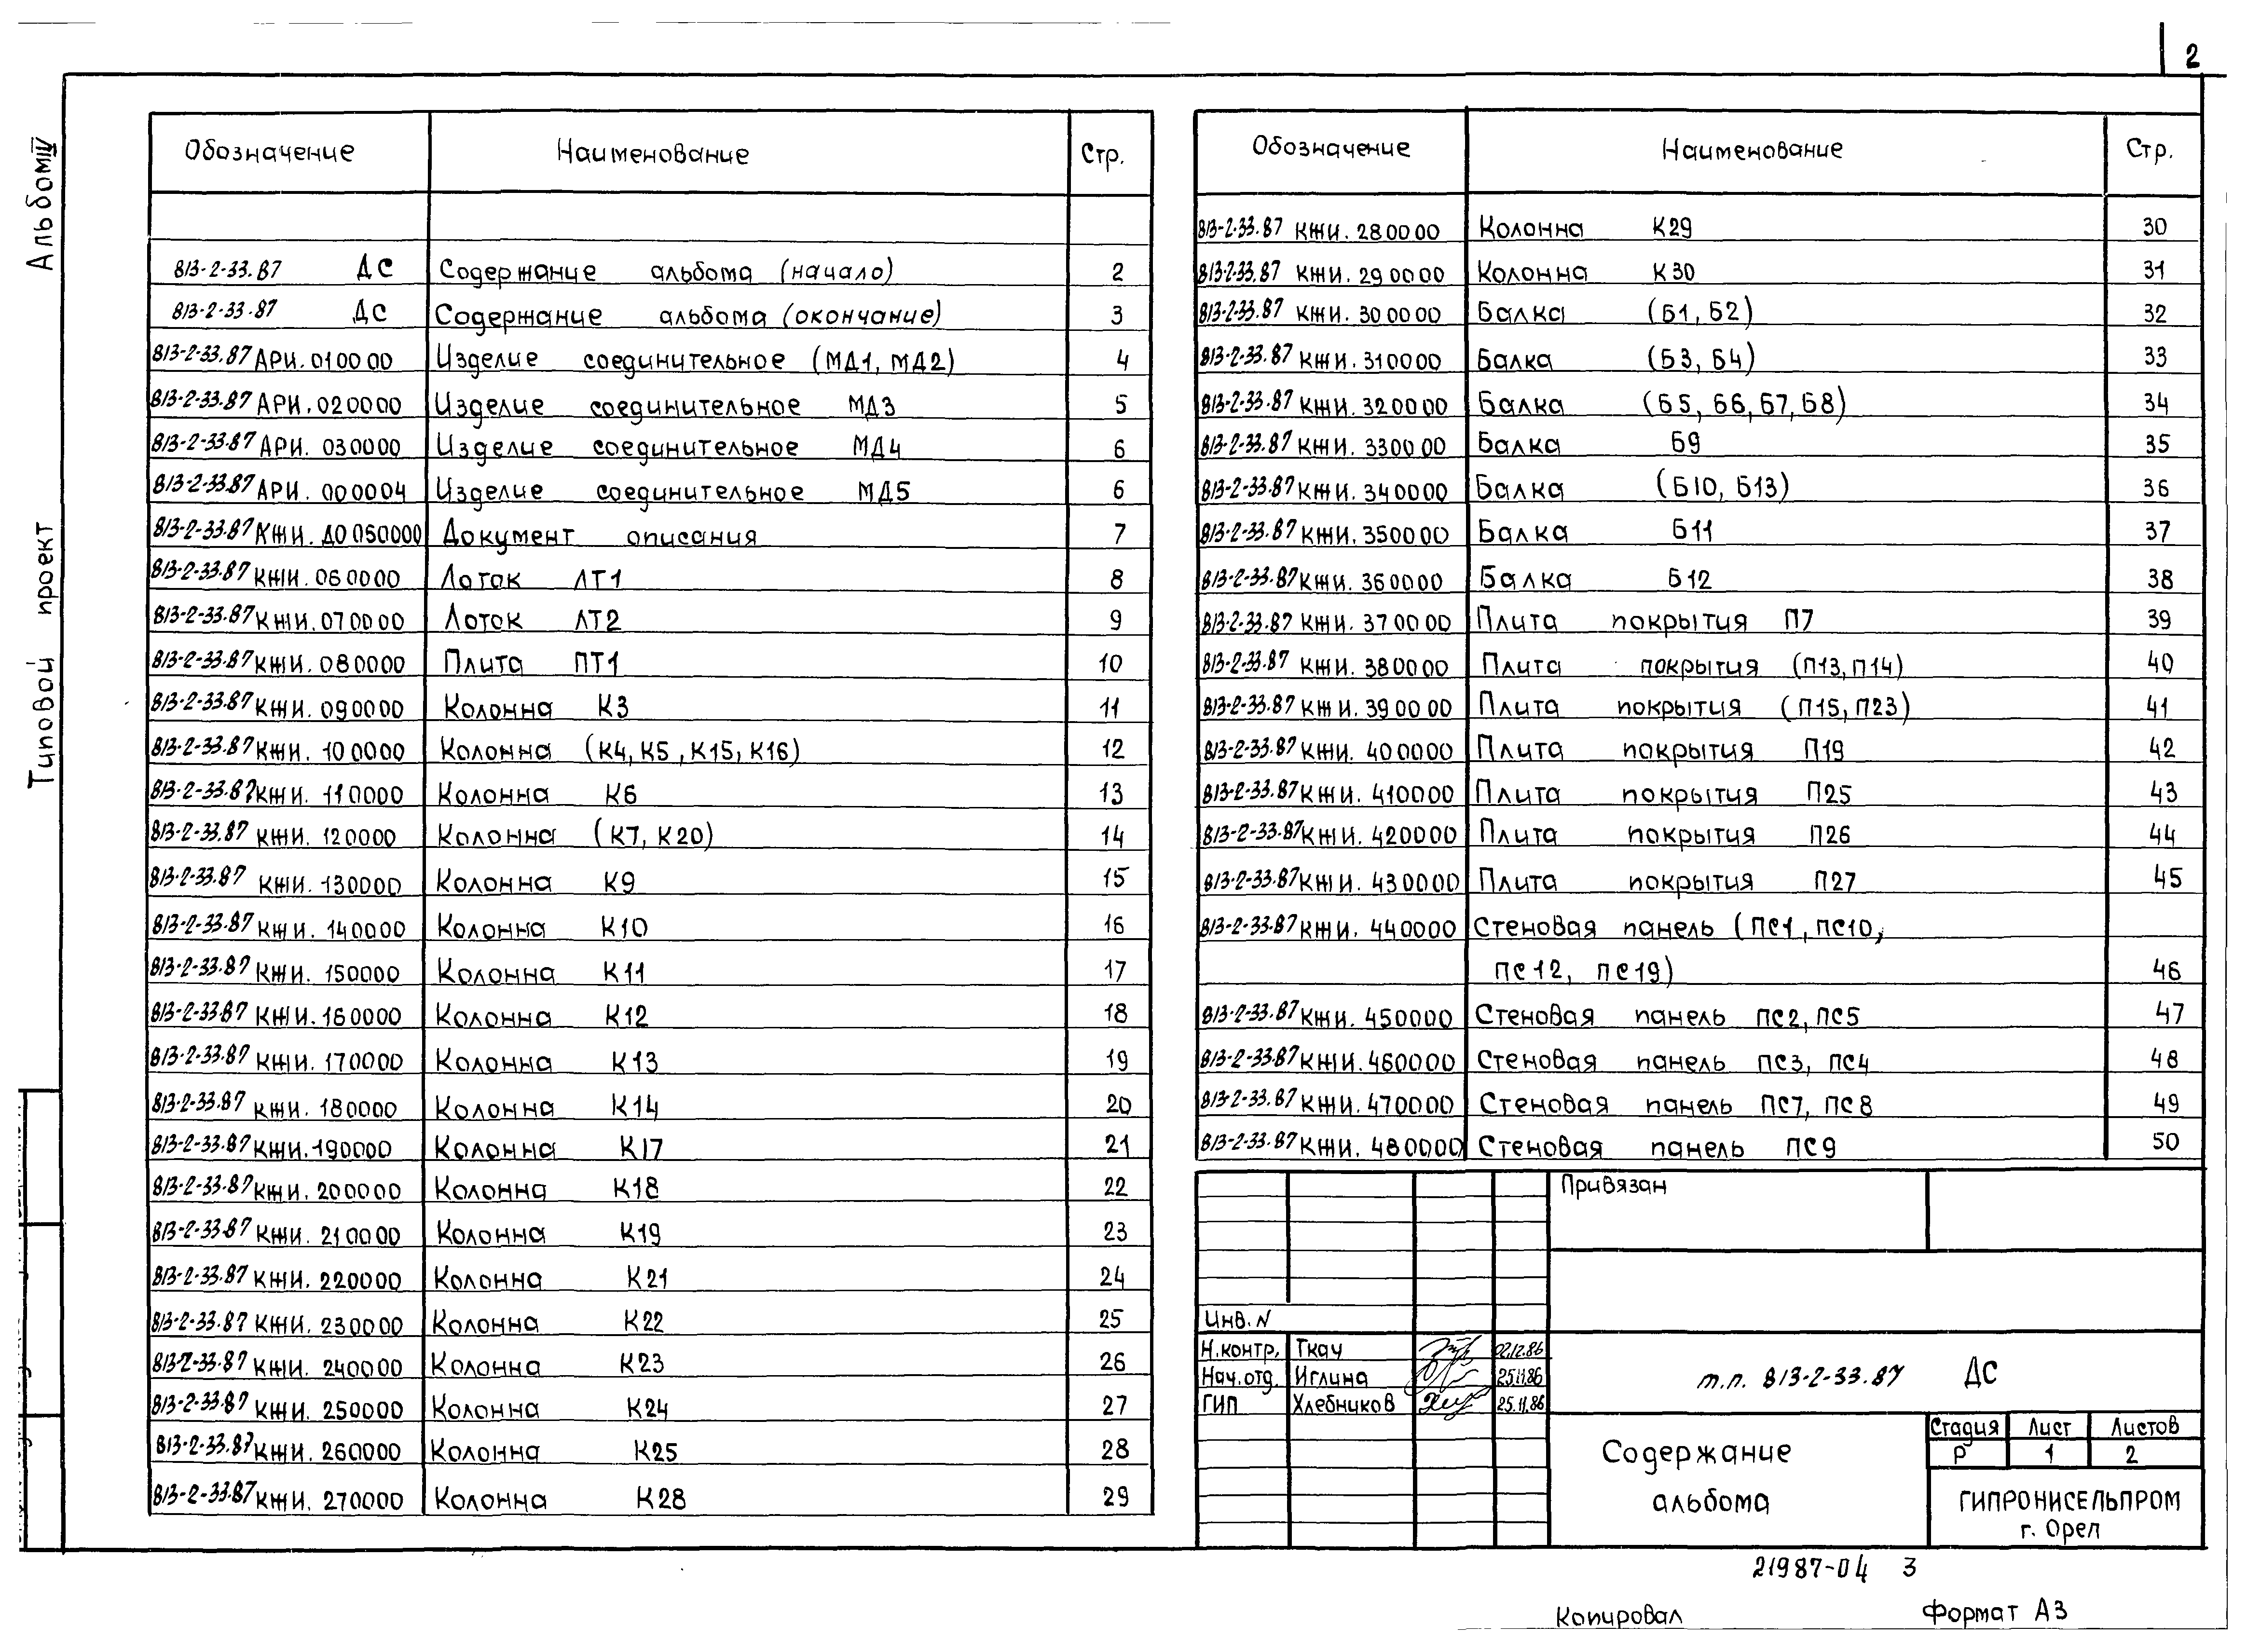 2
Альбом IV
Типовой проект
Обозначение Наименование Стр.
813-2-33.87 ДС Содержание альбома (начало) 2
813-2-33.87 ДС Содержание альбома (окончание) 3
813-2-33.87 АРИ.010000 Изделие соединительное (МД1, МД2) 4
813-2-33.87 АРИ.020000 Изделие соединительное МД3 5
813-2-33.87 АРИ.030000 Изделие соединительное МД4 6
813-2-33.87 АРИ.000004 Изделие соединительное МД5 6
813-2-33.87 КЖИ.Д0050000 Документ описания 7
813-2-33.87 КЖИ.060000 Лоток ЛТ1 8
813-2-33.87 КЖИ.070000 Лоток ЛТ2 9
813-2-33.87 КЖИ.080000 Плита ПТ1 10
813-2-33.87 КЖИ.090000 Колонна К3 11
813-2-33.87 КЖИ.100000 Колонна (К4, К5, К15, К16) 12
813-2-33.87 КЖИ.110000 Колонна К6 13
813-2-33.87 КЖИ.120000 Колонна (К7, К20) 14
813-2-33.87 КЖИ.130000 Колонна К9 15
813-2-33.87 КЖИ.140000 Колонна К10 16
813-2-33.87 КЖИ.150000 Колонна К11 17
813-2-33.87 КЖИ.160000 Колонна К12 18
813-2-33.87 КЖИ.170000 Колонна К13 19
813-2-33.87 КЖИ.180000 Колонна К14 20
813-2-33.87 КЖИ.190000 Колонна К17 21
813-2-33.87 КЖИ.200000 Колонна К18 22
813-2-33.87 КЖИ.210000 Колонна К19 23
813-2-33.87 КЖИ.220000 Колонна К21 24
813-2-33.87 КЖИ.230000 Колонна К22 25
813-2-33.87 КЖИ.240000 Колонна К23 26
813-2-33.87 КЖИ.250000 Колонна К24 27
813-2-33.87 КЖИ.260000 Колонна К25 28
813-2-33.87 КЖИ.270000 Колонна К28 29
Обозначение Наименование Стр.
813-2-33.87 КЖИ.280000 Колонна К29 30
813-2-33.87 КЖИ.290000 Колонна К30 31
813-2-33.87 КЖИ.300000 Балка (Б1, Б2) 32
813-2-33.87 КЖИ.310000 Балка (Б3, Б4) 33
813-2-33.87 КЖИ.320000 Балка (Б5, Б6, Б7, Б8) 34
813-2-33.87 КЖИ.330000 Балка Б9 35
813-2-33.87 КЖИ.340000 Балка (Б10, Б13) 36
813-2-33.87 КЖИ.350000 Балка Б11 37
813-2-33.87 КЖИ.360000 Балка Б12 38
813-2-33.87 КЖИ.370000 Плита покрытия П7 39
813-2-33.87 КЖИ.380000 Плита покрытия (П13, П14) 40
813-2-33.87 КЖИ.390000 Плита покрытия (П15, П23) 41
813-2-33.87 КЖИ.400000 Плита покрытия П19 42
813-2-33.87 КЖИ.410000 Плита покрытия П25 43
813-2-33.87 КЖИ.420000 Плита покрытия П26 44
813-2-33.87 КЖИ.430000 Плита покрытия П27 45
813-2-33.87 КЖИ.440000 Стеновая панель (ПС1, ПС10,
ПС12, ПС19) 46
813-2-33.87 КЖИ.450000 Стеновая панель ПС2, ПС5 47
813-2-33.87 КЖИ.460000 Стеновая панель ПС3, ПС4 48
813-2-33.87 КЖИ.470000 Стеновая панель ПС7, ПС8 49
813-2-33.87 КЖИ.480000 Стеновая панель ПС9 50
Привязан
Инв. N
Н.контр. Ткач 02.12.86
Нач.отд. Иглина 25.11.86
ГИП Хлебников 25.11.86
т.п. 813-2-33.87 ДС
Содержание
альбома
Стадия Лист Листов
Р 1 2
ГИПРОНИСЕЛЬПРОМ
г. Орел
21987-04 3
Копировал Формат А3